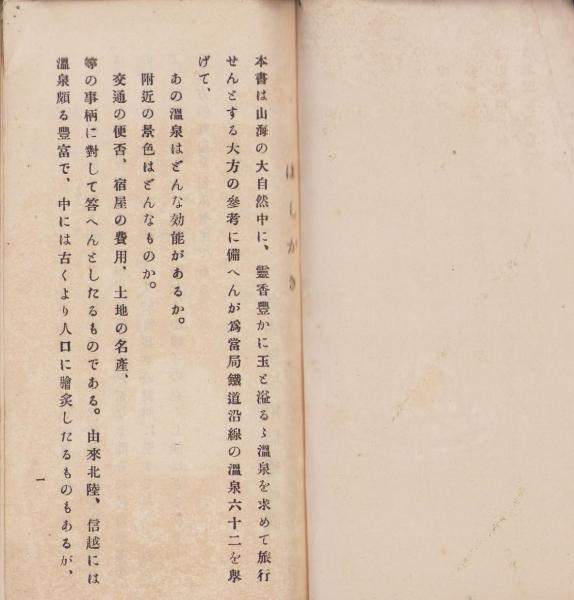 はしがき
本書は山海の大自然中に、靈香豐かに玉と溢るゝ溫泉を求めて旅行
せんとする大方の參考に備へんが爲當局鐵道沿線の溫泉六十二を擧
げて、
あの溫泉はどんな効能があるか。
附近の景色はどんなものか。
交通の便否、宿屋の費用、土地の名產、
等の事柄に對して答へんとしたるものである。由來北陸、信越には
溫泉頗る豐富で、中には古くより人口に膾炙したるものもあるが、
一